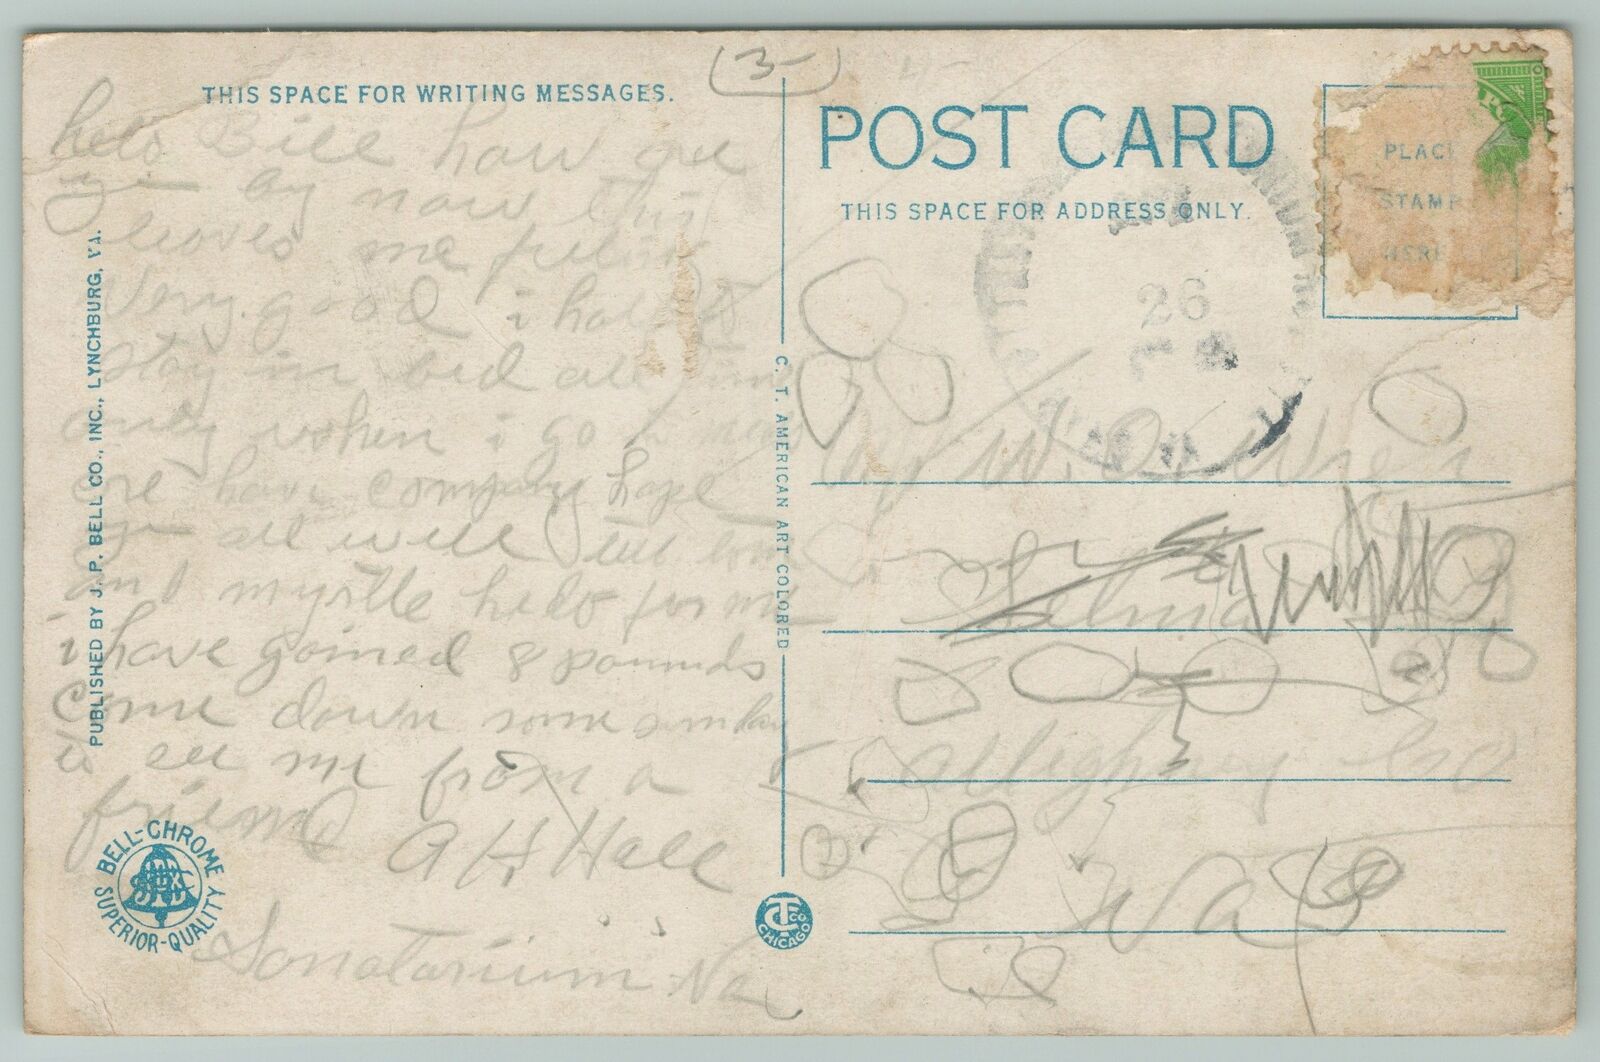 (3-)
THIS SPACE FOR WRITING MESSAGES.
helo Bill how are
you by now this
leaves me feelin
Very good i haft to
Stay in bed all time
only when i go
are have company hope
you all well tell
and myrtle helo for me
i have gained 8 pounds
come down some sunday
to see me from a
friend
A H Hall
Sanatorium Va
PUBLISHED BY J. P. BELL CO., INC., LYNCHBURG, VA.
BELL-CHROME
SUPERIOR-QUALITY
C. T. AMERICAN ART COLORED
CT CO
CHICAGO
POST CARD
THIS SPACE FOR ADDRESS ONLY.
PLACE
STAMP
HERE
26
W. O. Wren
Selma
Alleghany Co
Va